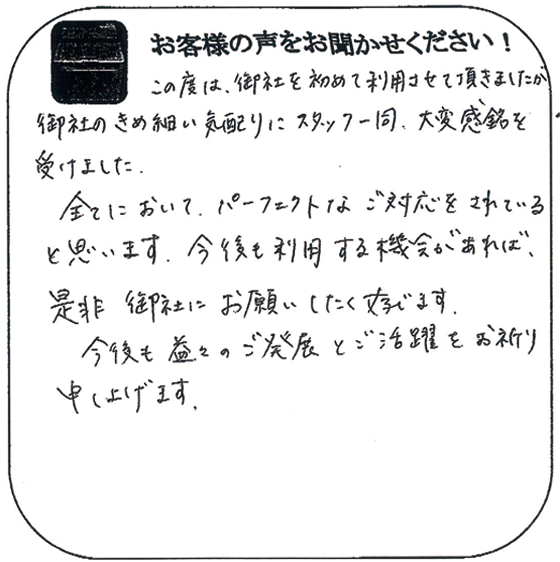 お客様の声をお聞かせください！
この度は、御社を初めて利用させて頂きましたが
御社のきめ細い気配りにスタッフ一同、大変感銘を
受けました.
全てにおいて、パーフェクトなご対応をされている
と思います. 今後も利用する機会があれば、
是非 御社に お願いしたく存じます.
今後も益々のご発展とご活躍をお祈り
申し上げます.